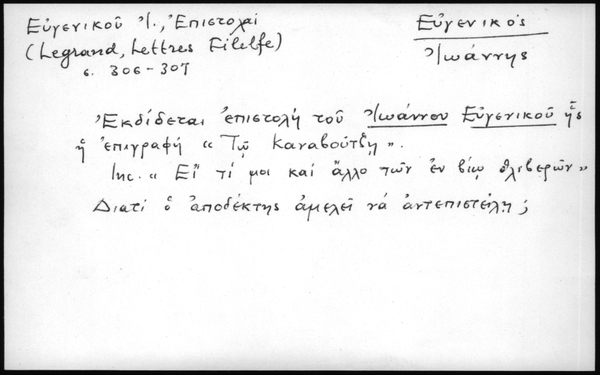 Εὐγενικοῦ Ἰ., Ἐπιστολαί
(Legrand, Lettres Filelfe)
s. 306-307
Εὐγενικός
Ἰωάννης
Ἐκδίδεται ἐπιστολή τοῦ Ἰωάννου Εὐγενικοῦ ἧς
ἡ ἐπιγραφή « Τῷ Καναβούτζῃ ».
Inc. « Εἴ τί μοι καί ἄλλο τῶν ἐν βίῳ θλιβερῶν »
Διατί ὁ ἀποδέκτης ἀμελεῖ νά ἀντεπιστείλῃ ;